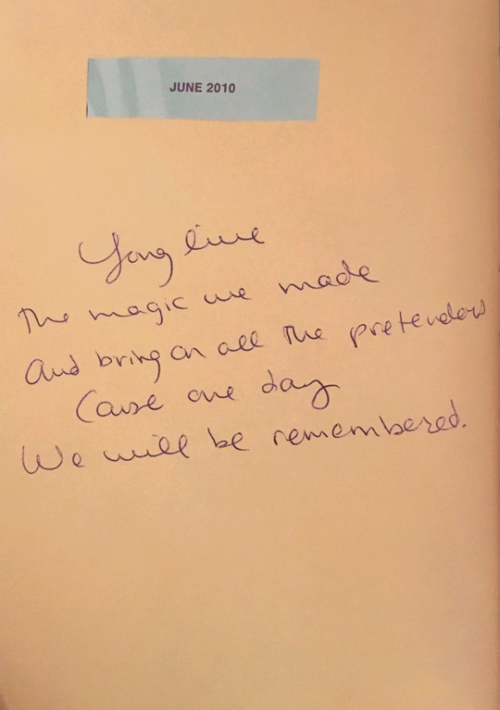 JUNE 2010
Long live
The magic we made
And bring on all the pretenders
Cause one day
We will be remembered.